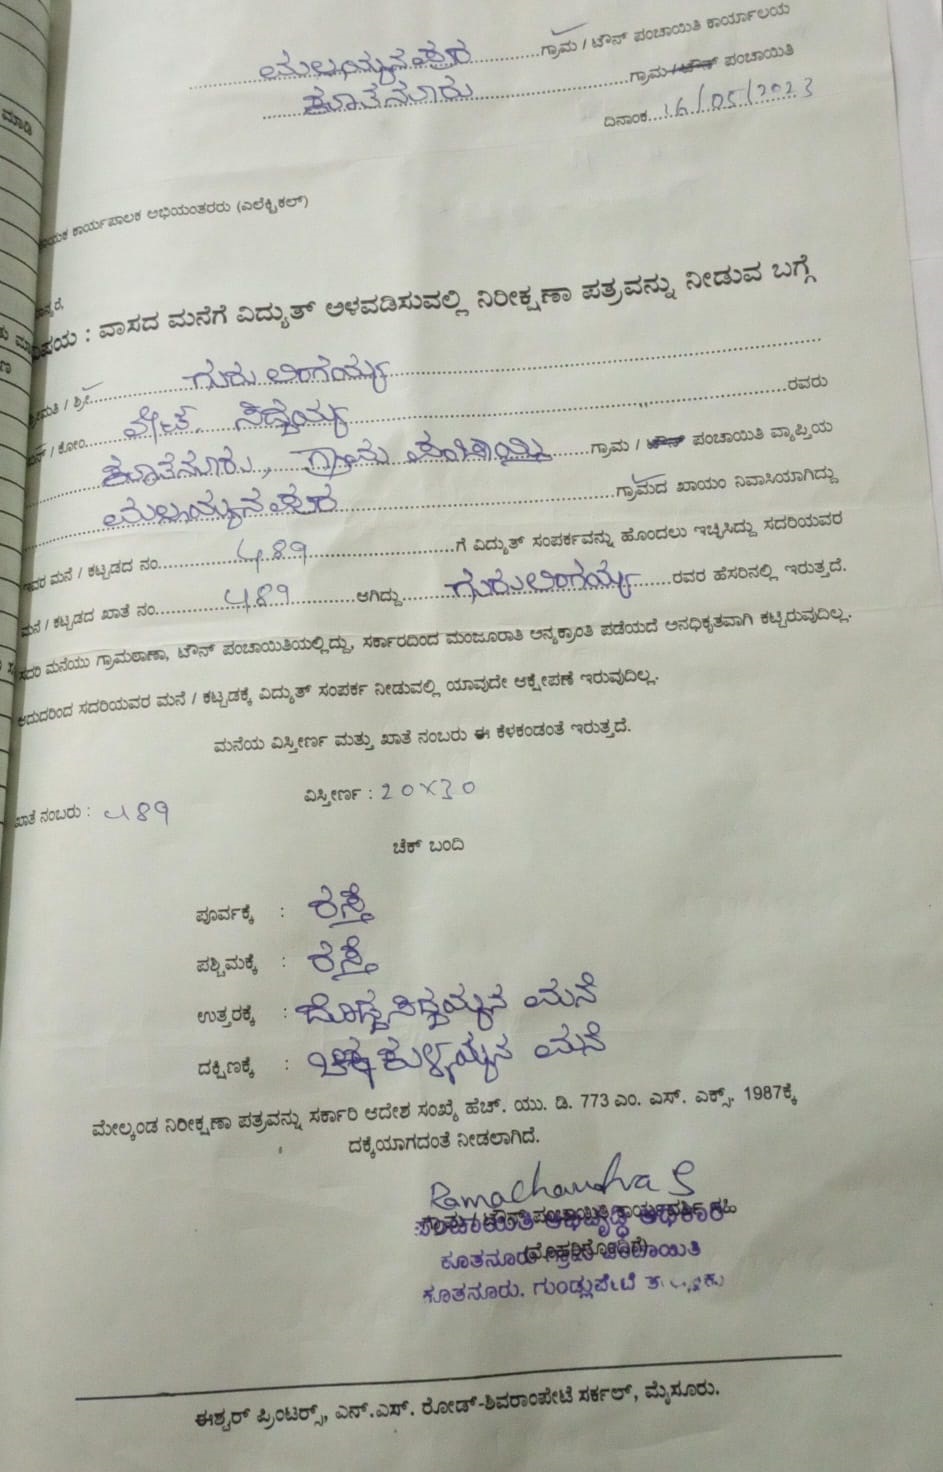 ಮಲ್ಲಯ್ಯನಪುರ ಗ್ರಾಮ / ಟೌನ್ ಪಂಚಾಯಿತಿ ಕಾರ್ಯಾಲಯ
ಕೂತನೂರು ಗ್ರಾಮ / ಟೌನ್ ಪಂಚಾಯಿತಿ
ದಿನಾಂಕ 16/05/2023
ಕಾರ್ಯಪಾಲಕ ಅಭಿಯಂತರರು (ಎಲೆಕ್ಟ್ರಿಕಲ್)
ವಿಷಯ : ವಾಸದ ಮನೆಗೆ ವಿದ್ಯುತ್ ಅಳವಡಿಸುವಲ್ಲಿ ನಿರೀಕ್ಷಣಾ ಪತ್ರವನ್ನು ನೀಡುವ ಬಗ್ಗೆ
ಶ್ರೀಮತಿ / ಶ್ರೀ ಗುರುಲಿಂಗಯ್ಯ
ಕೋಂ. ಸಿದ್ದಯ್ಯ ರವರು
ಕೂತನೂರು, ಗ್ರಾಮ ಪಂಚಾಯ್ತಿ ಗ್ರಾಮ / ಟೌನ್ ಪಂಚಾಯಿತಿ ವ್ಯಾಪ್ತಿಯ
ಮಲ್ಲಯ್ಯನಪುರ ಗ್ರಾಮದ ಖಾಯಂ ನಿವಾಸಿಯಾಗಿದ್ದು
ಮನೆ / ಕಟ್ಟಡದ ನಂ. 489 ಗೆ ವಿದ್ಯುತ್ ಸಂಪರ್ಕವನ್ನು ಹೊಂದಲು ಇಚ್ಚಿಸಿದ್ದು ಸದರಿಯವರ
ಮನೆ / ಕಟ್ಟಡದ ಖಾತೆ ನಂ. 489 ಆಗಿದ್ದು ಗುರುಲಿಂಗಯ್ಯ ರವರ ಹೆಸರಿನಲ್ಲಿ ಇರುತ್ತದೆ.
ಸದರಿ ಮನೆಯು ಗ್ರಾಮಠಾಣಾ, ಟೌನ್ ಪಂಚಾಯಿತಿಯಲ್ಲಿದ್ದು, ಸರ್ಕಾರದಿಂದ ಮಂಜೂರಾತಿ ಅನ್ಯಕ್ರಾಂತಿ ಪಡೆಯದೆ ಅನಧಿಕೃತವಾಗಿ ಕಟ್ಟಿರುವುದಿಲ್ಲ.
ಆದುದರಿಂದ ಸದರಿಯವರ ಮನೆ / ಕಟ್ಟಡಕ್ಕೆ ವಿದ್ಯುತ್ ಸಂಪರ್ಕ ನೀಡುವಲ್ಲಿ ಯಾವುದೇ ಆಕ್ಷೇಪಣೆ ಇರುವುದಿಲ್ಲ.
ಮನೆಯ ವಿಸ್ತೀರ್ಣ ಮತ್ತು ಖಾತೆ ನಂಬರು ಈ ಕೆಳಕಂಡಂತೆ ಇರುತ್ತದೆ.
ಖಾತೆ ನಂಬರು : 489 ವಿಸ್ತೀರ್ಣ : 20×30
ಚೆಕ್ ಬಂದಿ
ಪೂರ್ವಕ್ಕೆ : ರಸ್ತೆ
ಪಶ್ಚಿಮಕ್ಕೆ : ರಸ್ತೆ
ಉತ್ತರಕ್ಕೆ : ದೊಡ್ಡಸಿದ್ದಯ್ಯನ ಮನೆ
ದಕ್ಷಿಣಕ್ಕೆ : ಚಿಕ್ಕಕುಳ್ಳಯ್ಯನ ಮನೆ
ಮೇಲ್ಕಂಡ ನಿರೀಕ್ಷಣಾ ಪತ್ರವನ್ನು ಸರ್ಕಾರಿ ಆದೇಶ ಸಂಖ್ಯೆ ಹೆಚ್. ಯು. ಡಿ. 773 ಎಂ. ಎಸ್. ಎಕ್ಸ್. 1987ಕ್ಕೆ
ದಕ್ಕೆಯಾಗದಂತೆ ನೀಡಲಾಗಿದೆ.
Ramachandra S
ಪಂಚಾಯಿತಿ ಅಭಿವೃದ್ಧಿ ಅಧಿಕಾರಿ
ಕೂತನೂರು ಗ್ರಾಮ ಪಂಚಾಯಿತಿ
ಕೂತನೂರು. ಗುಂಡ್ಲುಪೇಟೆ ತಾಲ್ಲೂಕು
ಈಶ್ವರ್ ಪ್ರಿಂಟರ್ಸ್, ಎನ್.ಎಸ್. ರೋಡ್-ಶಿವರಾಂಪೇಟೆ ಸರ್ಕಲ್, ಮೈಸೂರು.